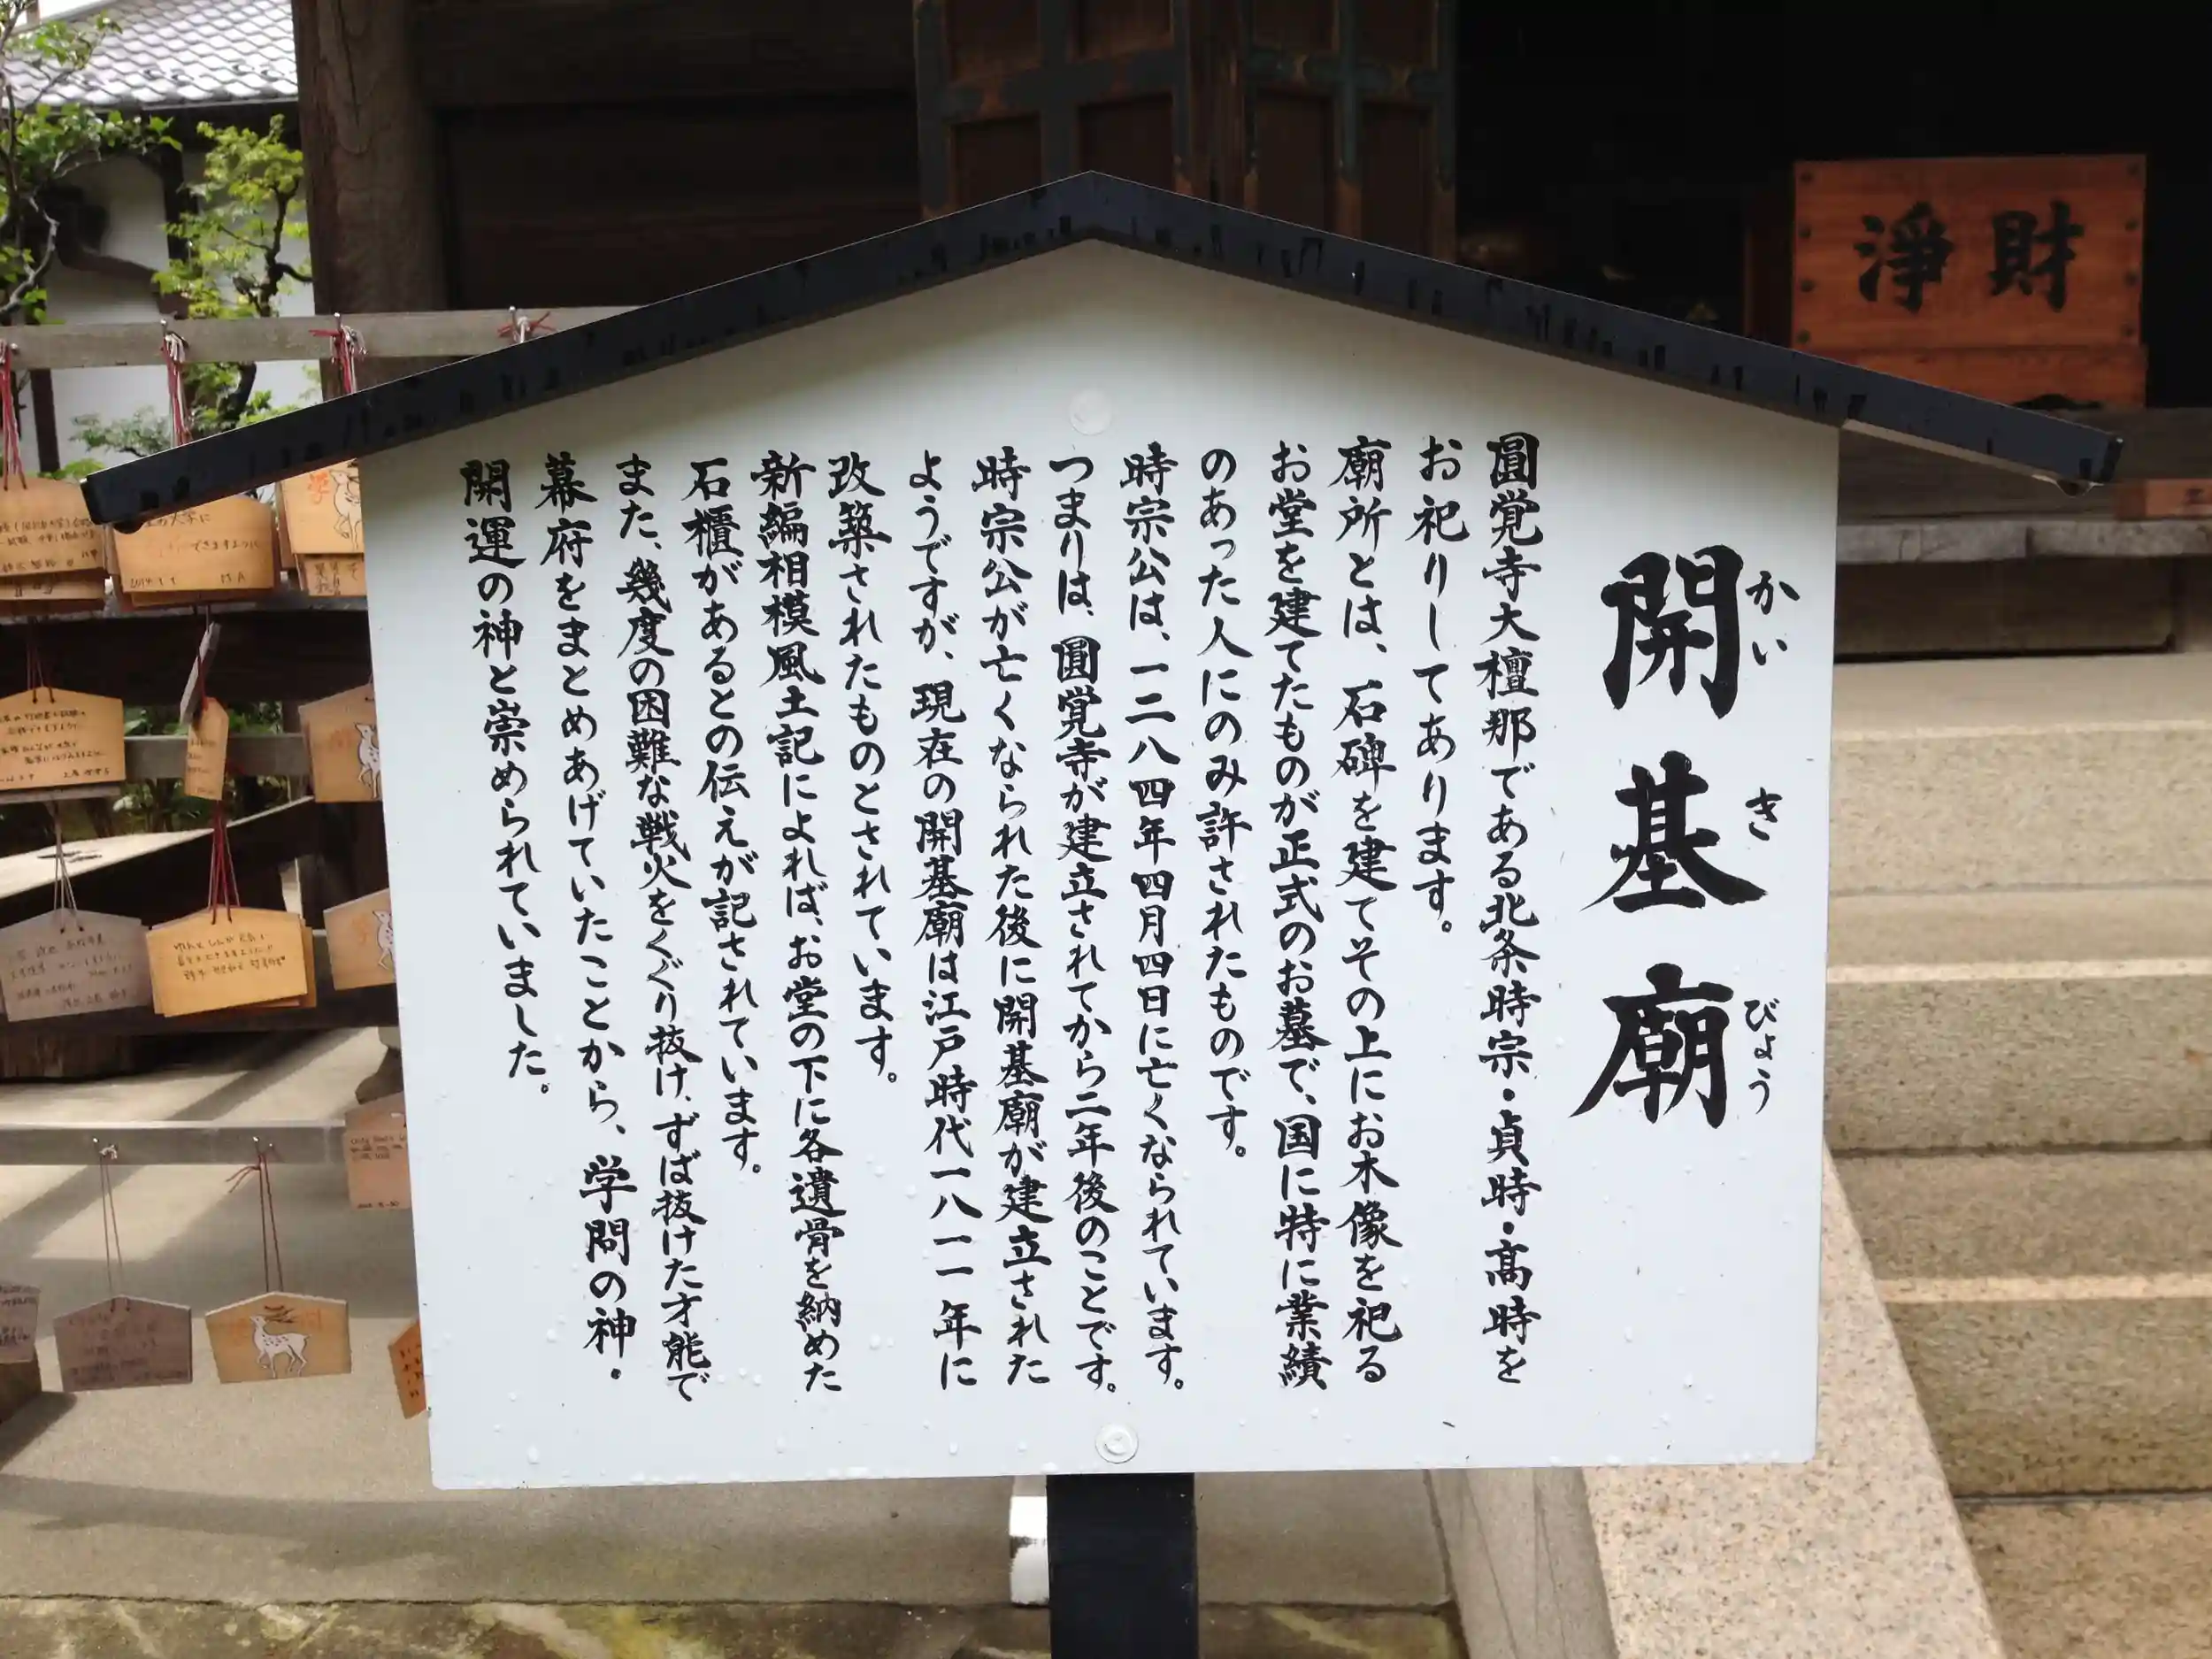 開基廟
かい き びょう
圓覚寺大檀那である北条時宗・貞時・高時を
お祀りしてあります。
廟所とは、石碑を建てその上にお木像を祀る
お堂を建てたものが正式のお墓で、国に特に業績
のあった人にのみ許されたものです。
時宗公は、一二八四年四月四日に亡くなられています。
つまりは、圓覚寺が建立されてから二年後のことです。
時宗公が亡くなられた後に開基廟が建立された
ようですが、現在の開基廟は江戸時代一八一一年に
改築されたものとされています。
新編相模風土記によれば、お堂の下に各遺骨を納めた
石櫃があるとの伝えが記されています。
また、幾度の困難な戦火をくぐり抜け、ずば抜けた才能で
幕府をまとめあげていたことから、学問の神・
開運の神と崇められていました。
淨財